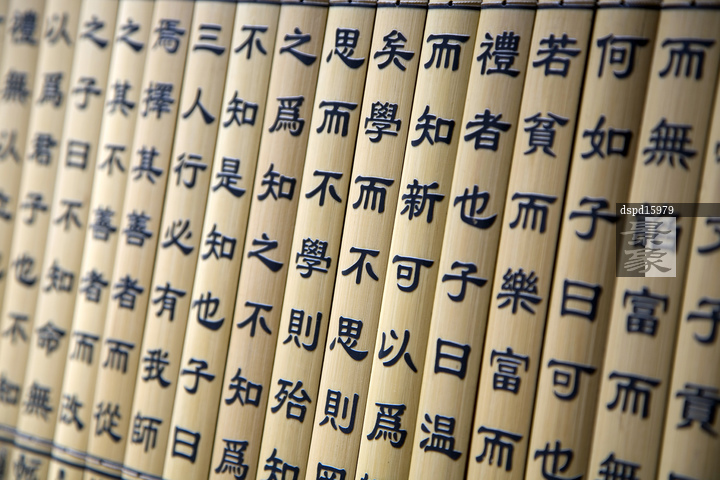 子貢
而無富而無
何如子曰可也
若貧而樂富而
禮者也子曰溫
而知新可以爲
矣學而不思則罔
思而不學則殆知
之爲知之不知爲
不知是知也子曰
三人行必有我師
焉擇其善者而從
之其不善者而改
之子曰不知命無
以爲君子也不知
禮無以
dspd15979
景象